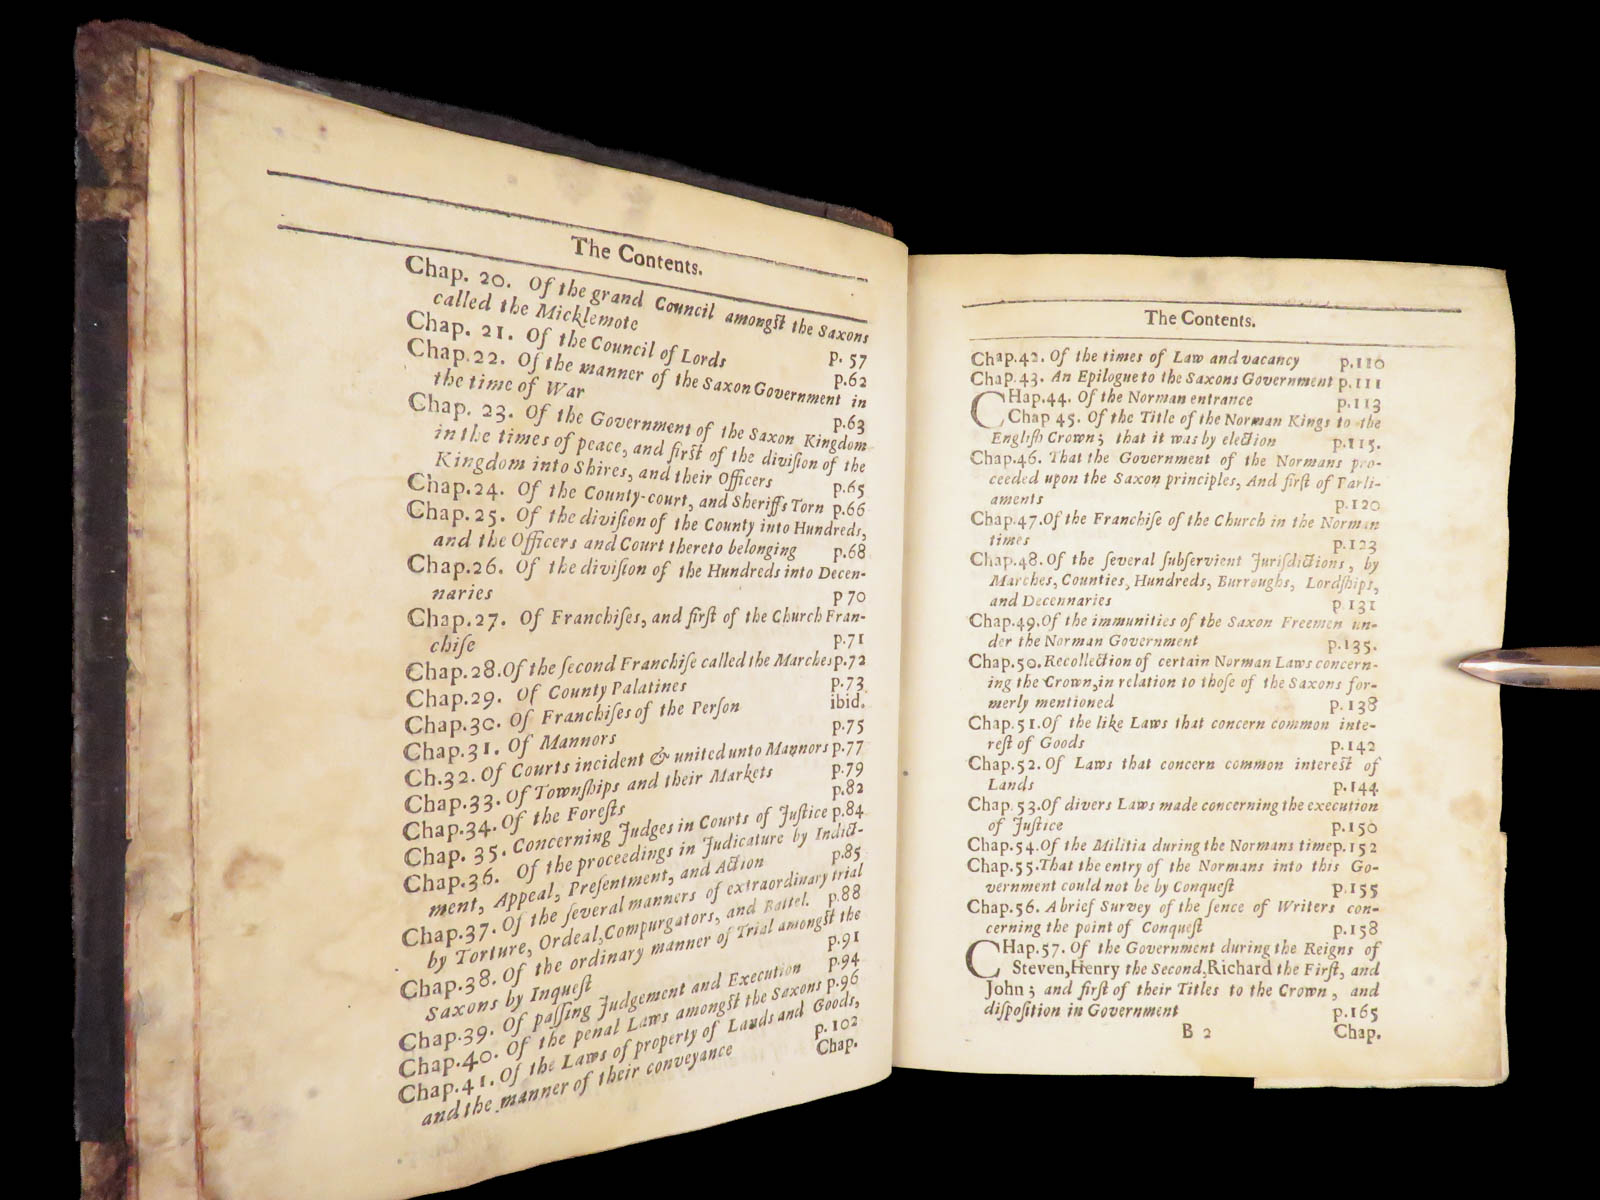 The Contents.
Chap. 20. Of the grand Council amongſt the Saxons
called the Micklemote p. 57
Chap. 21. Of the Council of Lords p.62
Chap.22. Of the manner of the Saxon Government in
the time of War p.63
Chap. 23. Of the Government of the Saxon Kingdom
in the times of peace, and firſt of the diviſion of the
Kingdom into Shires, and their Officers p.65
Chap.24. Of the County-court, and Sheriffs Torn p.66
Chap.25. Of the diviſion of the County into Hundreds,
and the Officers and Court thereto belonging p.68
Chap.26. Of the diviſion of the Hundreds into Decen-
naries p 70
Chap.27. Of Franchiſes, and firſt of the Church Fran-
chiſe p.71
Chap.28.Of the ſecond Franchiſe called the Marches p.72
Chap.29. Of County Palatines p.73
Chap.30. Of Franchiſes of the Perſon ibid.
Chap.31. Of Mannors p.75
Ch.32. Of Courts incident & united unto Mannors p.77
Chap.33. Of Townſhips and their Markets p.79
Chap.34. Of the Foreſts p.82
Chap. 35. Concerning Judges in Courts of Juſtice p.84
Chap.36. Of the proceedings in Judicature by Indict-
ment, Appeal, Preſentment, and Action p.85
Chap.37. Of the ſeveral manners of extraordinary trial
by Torture, Ordeal, Compurgators, and Battel. p.88
Chap.38. Of the ordinary manner of Trial amongſt the
Saxons by Inqueſt p.91
Chap.39. Of paſſing Judgement and Execution p.94
Chap.40. Of the penal Laws amongſt the Saxons p.96
Chap.41. Of the Laws of property of Lands and Goods,
and the manner of their conveyance p. 102
Chap.
The Contents.
Chap.42. Of the times of Law and vacancy p.110
Chap.43. An Epilogue to the Saxons Government p.111
CHap.44. Of the Norman entrance p.113
Chap 45. Of the Title of the Norman Kings to the
Engliſh Crown; that it was by election p.115.
Chap.46. That the Government of the Normans pro-
ceeded upon the Saxon principles, And firſt of Parli-
aments p.120
Chap.47.Of the Franchiſe of the Church in the Norman
times p.123
Chap.48.Of the ſeveral ſubſervient Juriſdictions, by
Marches, Counties, Hundreds, Burroughs, Lordſhips,
and Decennaries p.131
Chap.49.Of the immunities of the Saxon Freemen un-
der the Norman Government p.135.
Chap.50.Recollection of certain Norman Laws concern-
ing the Crown,in relation to thoſe of the Saxons for-
merly mentioned p.138
Chap.51.Of the like Laws that concern common inte-
reſt of Goods p.142
Chap.52.Of Laws that concern common intereſt of
Lands p.144
Chap.53.Of divers Laws made concerning the execution
of Juſtice p.150
Chap.54.Of the Militia during the Normans time p.152
Chap.55.That the entry of the Normans into this Go-
vernment could not be by Conqueſt p.155
Chap.56. A brief Survey of the ſence of Writers con-
cerning the point of Conqueſt p.158
CHap.57. Of the Government during the Reigns of
Steven,Henry the Second,Richard the Firſt, and
John; and firſt of their Titles to the Crown, and
diſpoſition in Government p.165
B 2 Chap.